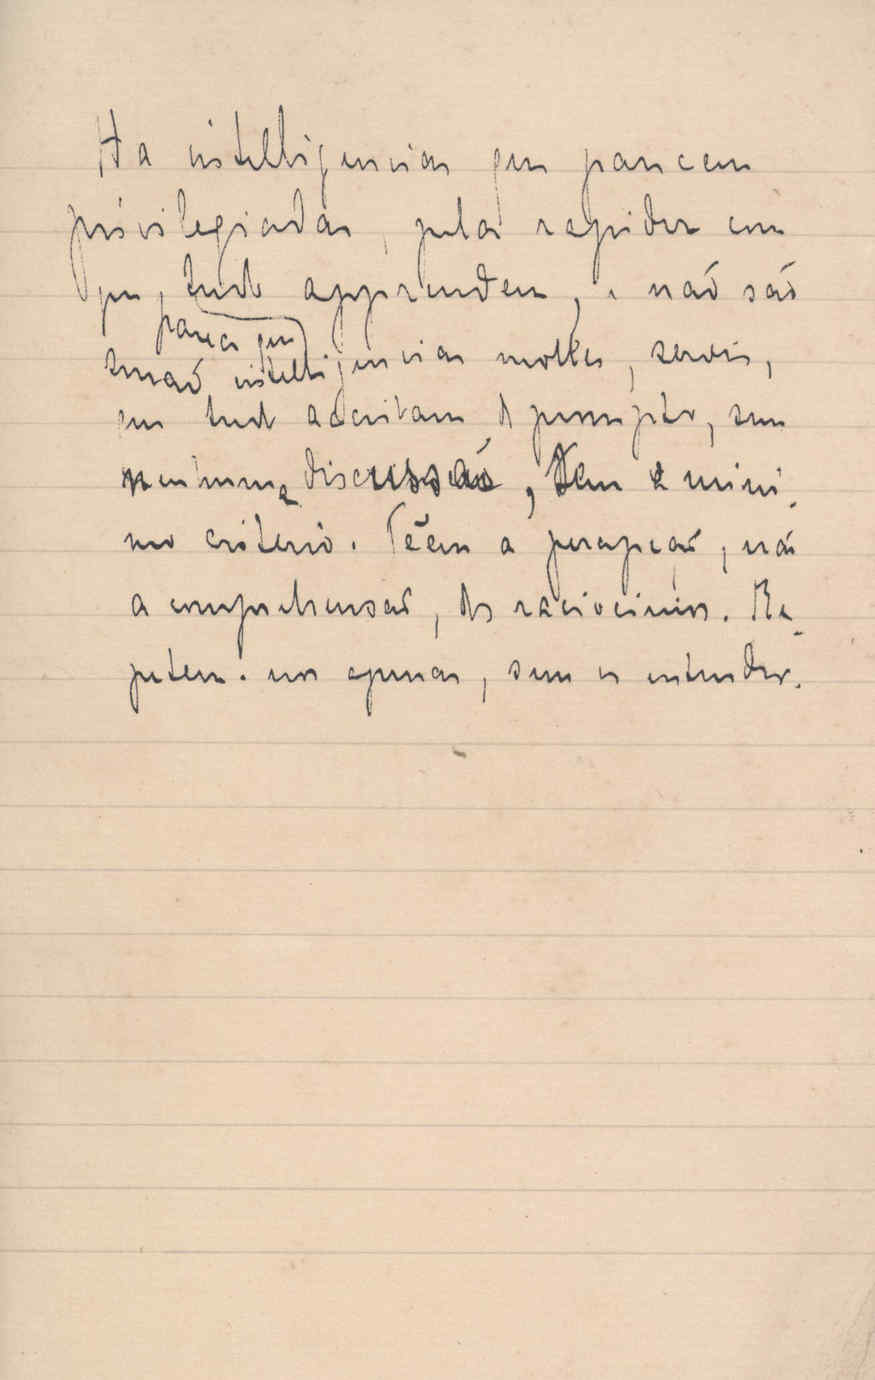 Ha intelligencias que parecem
privilegiadas, pela rapidez com
que, tudo apprendem, e não são
senão intelligencias molles, servis,
que tudo acceitam de prompto, sem
nenhuma discussão, sem o mini-
mo criterio. Têem a percepção, não
a comprehensão, dos raciocinios. Re-
petem-nos apenas, sem os entender.